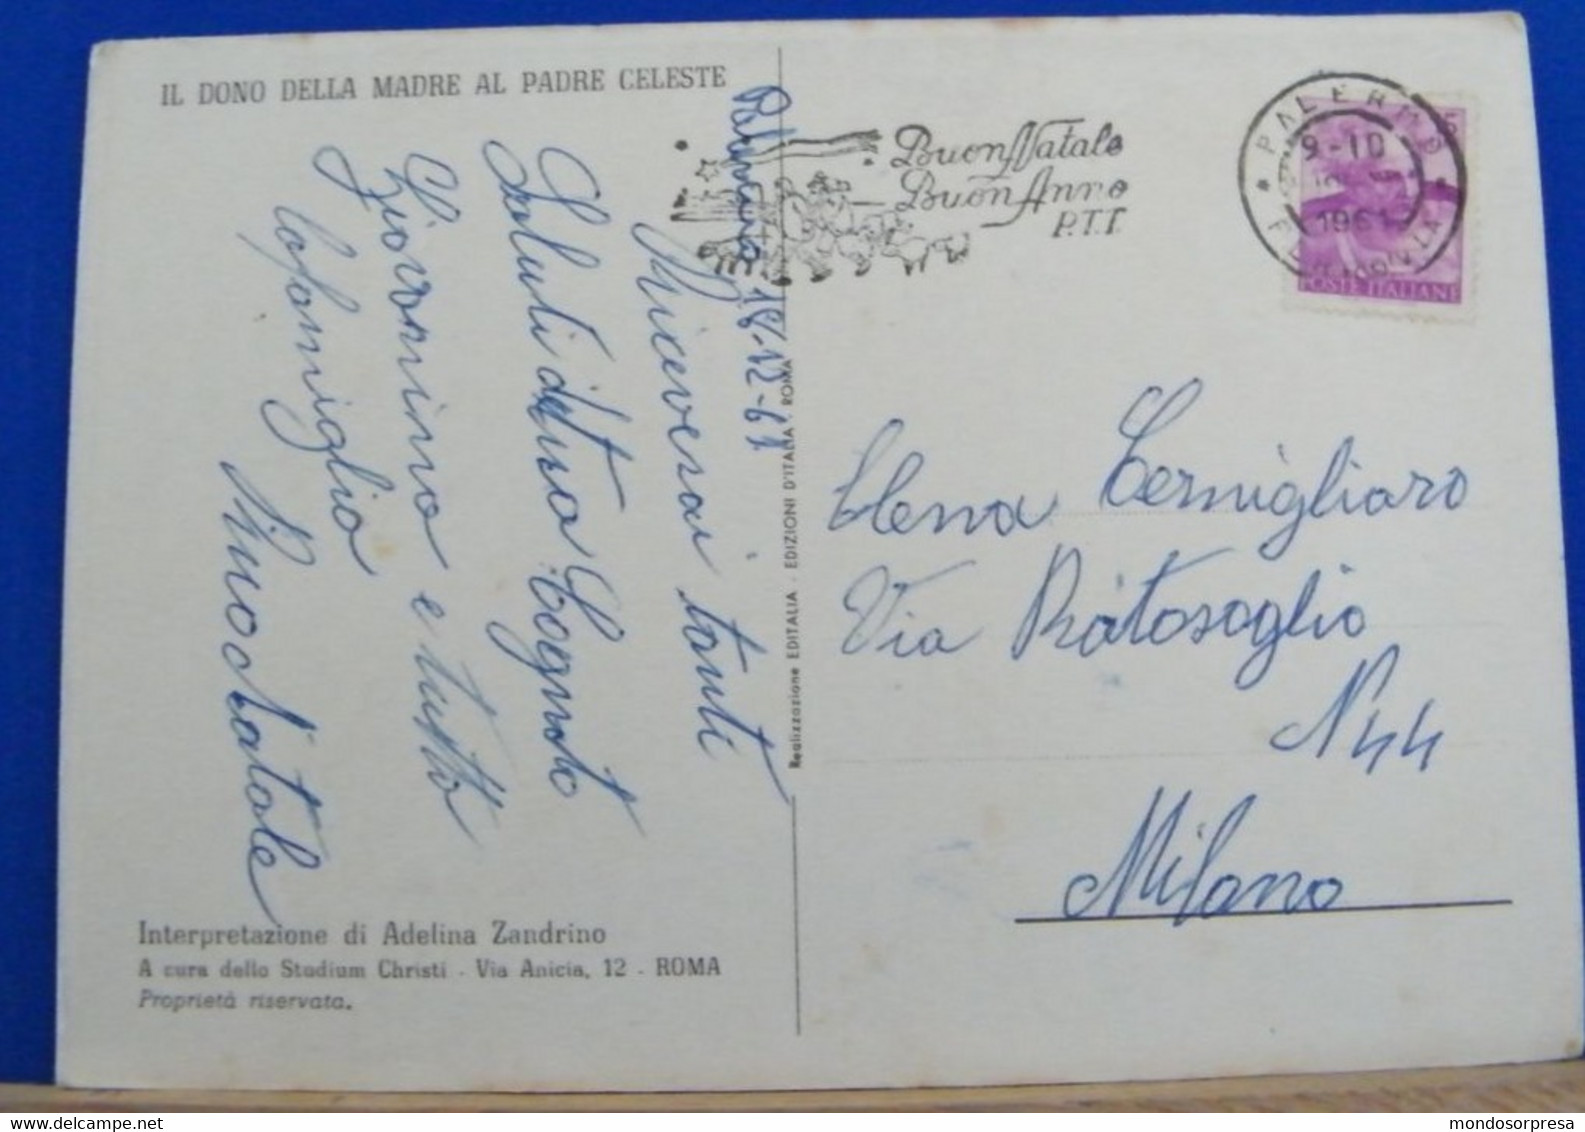 IL DONO DELLA MADRE AL PADRE CELESTE
Palermo 18-12-61
Riceverai tanti
Saluti da tuo Cognato
Giovannino e tutta
la famiglia
Buon Natale
Interpretazione di Adelina Zandrino
A cura dello Studium Christi - Via Anicia, 12 - ROMA
Proprietà riservata.
Realizzazione EDITALIA - EDIZIONI D'ITALIA - ROMA
Buon Natale
Buon Anno
P.T.T.
PALERMO
9-10
1961
FERROVIA
POSTE ITALIANE
Elena Cernigliaro
Via Ratosoglio
N 44
Milano
mondosorpresa